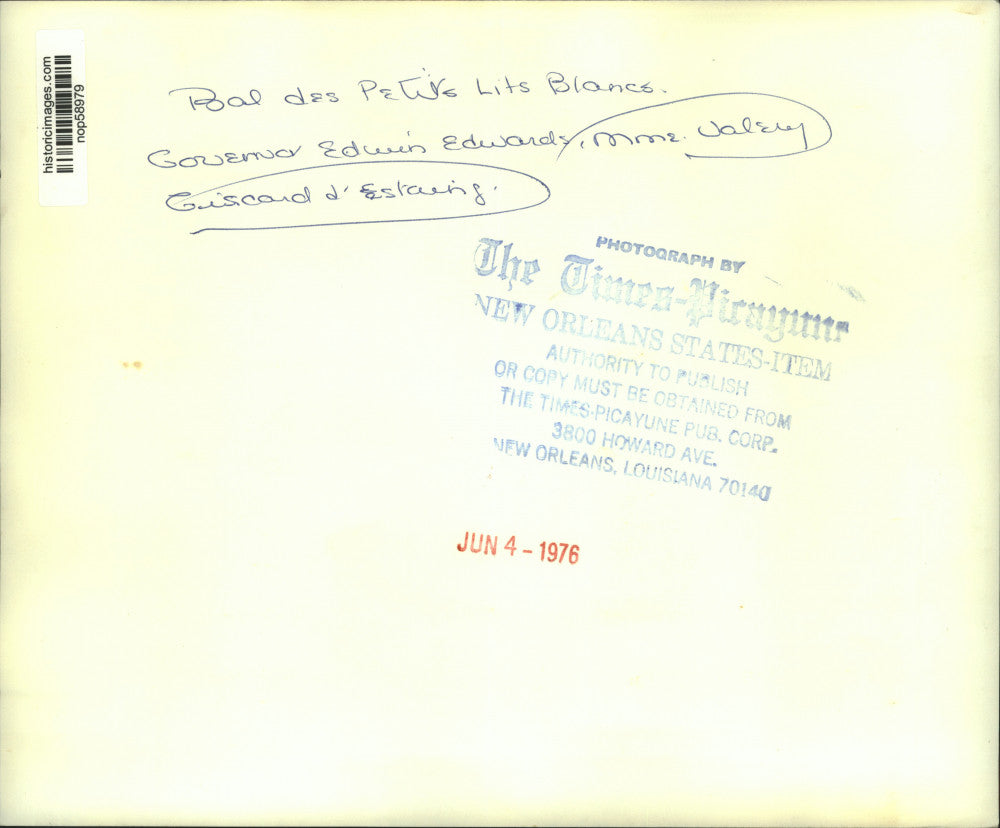 historicimages.com
nop58979
Bal des Petits Lits Blancs.
Governor Edwin Edwards, Mme. Valery
Giscard d'Estaing.
PHOTOGRAPH BY
The Times-Picayune
NEW ORLEANS STATES-ITEM
AUTHORITY TO PUBLISH
OR COPY MUST BE OBTAINED FROM
THE TIMES-PICAYUNE PUB. CORP.
3800 HOWARD AVE.
NEW ORLEANS, LOUISIANA 70140
JUN 4 - 1976